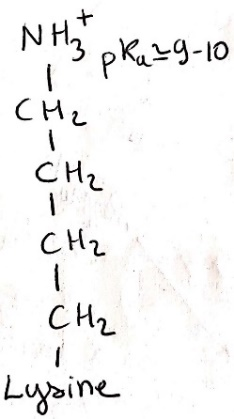 NH₃⁺ pKa≃9-10
CH₂
CH₂
CH₂
CH₂
Lysine